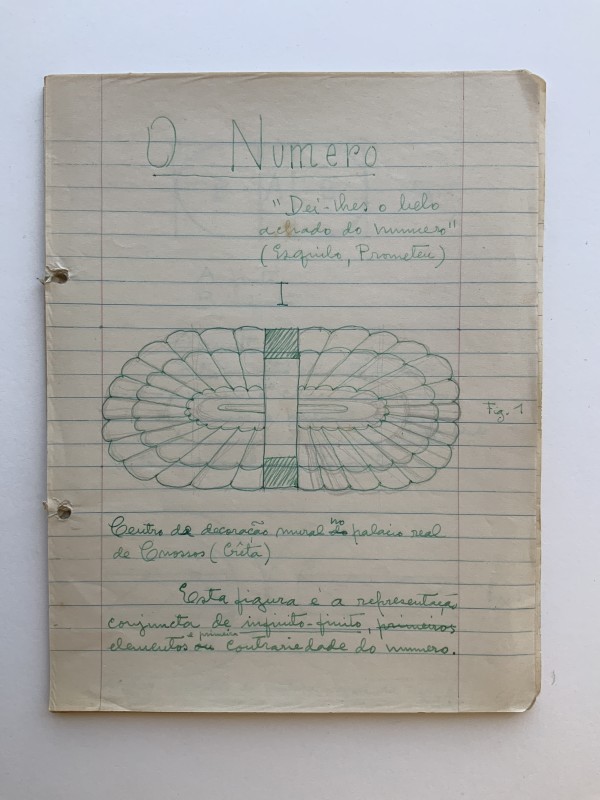 O Numero
"Dei-lhes o belo
achado do numero"
(Esquilo, Prometeu)
I
Fig. 1
Centro da decoração mural do no palacio real
de Cnossos (Crêta)
Esta figura é a representação
conjuncta de infinito-finito, primeiros
elementos ou e primeira contrariedade do numero.